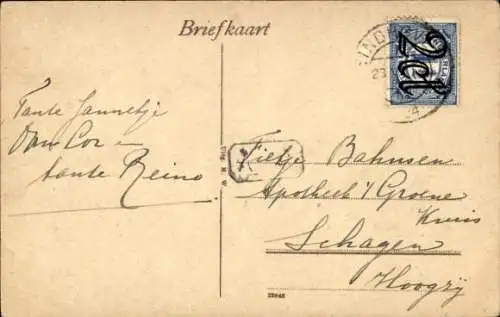 Briefkaart
2ct
Tante Jannetje
Oom Cor en
tante Reino
Fietje Bahnsen
Apotheek 't Groene
Kruis
Schagen
Hoogzij
22046